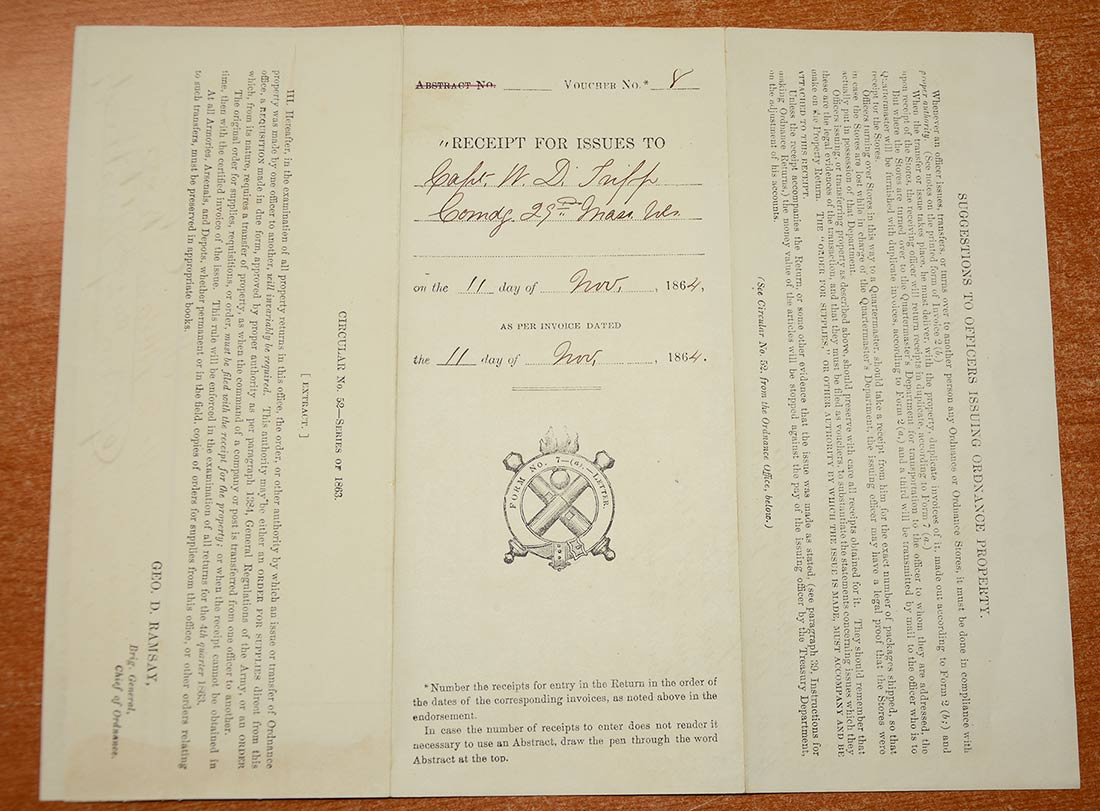 ABSTRACT No. VOUCHER No.* 8
"RECEIPT FOR ISSUES TO
Capt. W. D. Tripp
Comdg. 29th Mass Vols
on the 11 day of Nov, , 1864,
AS PER INVOICE DATED
the 11 day of Nov, , 1864.
FORM No. 7—(a).—LETTER.
*Number the receipts for entry in the Return in the order of
the dates of the corresponding invoices, as noted above in the
endorsement.
In case the number of receipts to enter does not render it
necessary to use an Abstract, draw the pen through the word
Abstract at the top.
SUGGESTIONS TO OFFICERS ISSUING ORDNANCE PROPERTY.
Whenever an officer issues, transfers, or turns over to another person any Ordnance or Ordnance Stores, it must be done in compliance with
proper authority. (See notes on the printed form of Invoice 2 (b).)
When the transfer or issue takes place, he must deliver, with the property, duplicate invoices of it, made out according to Form 2 (b;) and
upon receipt of the Stores, the receiving officer will return receipts in duplicate, according to Form 7 (b.)
But where the Stores are turned over to the Quartermaster's Department for transportation to the officer to whom they are addressed, the
Quartermaster will be furnished with duplicate invoices, according to Form 2 (a,) and a third will be transmitted by mail to the officer who is to
receipt for the Stores.
Officers turning over Stores in this way to a Quartermaster, should take a receipt from him for the exact number of packages shipped, so that
in case the Stores are lost while in charge of the Quartermaster's Department, the issuing officer may have a legal proof that the Stores were
actually put in possession of that Department.
Officers issuing, or transferring property as described above, should preserve with care all receipts obtained for it. They should remember that
these are the legal evidences of the transaction, and that they must be filed as vouchers, to substantiate the statements concerning issues which they
make on the Property Return. THE "ORDER FOR SUPPLIES, OR OTHER AUTHORITY BY WHICH THE ISSUE IS MADE, MUST ACCOMPANY AND BE
ATTACHED TO THIS RECEIPT.
Unless the receipt accompanies the Return, or some other evidence that the issue was made as stated, (see paragraph 39, Instructions for
making Ordnance Returns,) the money value of the articles will be stopped against the pay of the issuing officer by the Treasury Department,
on the adjustment of his accounts.
(See Circular No. 52, from the Ordnance Office, below.)
CIRCULAR No. 52—SERIES OF 1863.
[EXTRACT.]
III. Hereafter, in the examination of all property returns in this office, the order, or other authority by which an issue or transfer of Ordnance
property was made by one officer to another, will invariably be required. This authority may be either an ORDER FOR SUPPLIES direct from this
office, a REQUISITION made in due form, approved by proper authority as per paragraph 1384, General Regulations of the Army, or an ORDER
which, from its nature, requires a transfer of property, as when the command of a company or post is transferred from one officer to another.
The original order for supplies, requisitions, or order, must be filed with the receipt for the property; or when the receipt cannot be obtained in
time, then with the certified invoice of the issue. This rule will be enforced in the examination of all returns for the 4th quarter 1863.
At all Armories, Arsenals, and Depots, whether permanent or in the field, copies of orders for supplies from this office, or other orders relating
to such transfers, must be preserved in appropriate books.
GEO. D. RAMSAY,
Brig. General,
Chief of Ordnance.